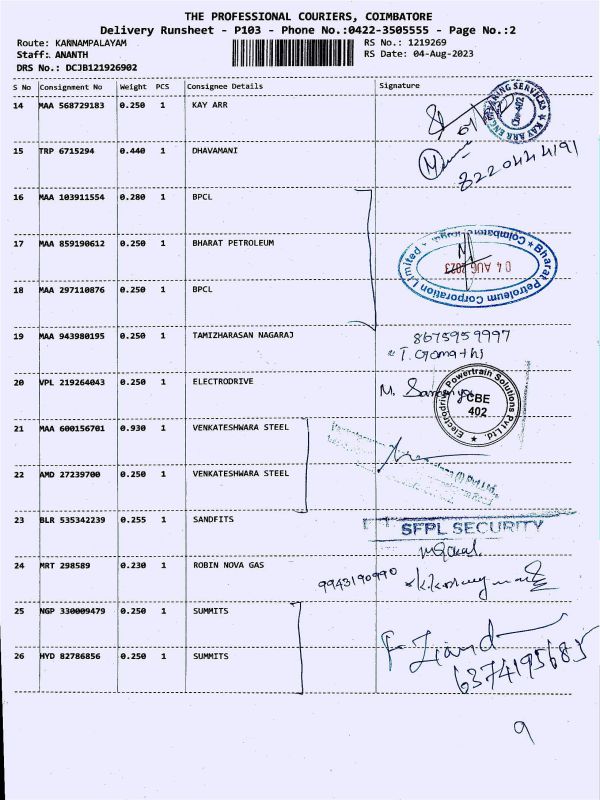 THE PROFESSIONAL COURIERS, COIMBATORE
Delivery Runsheet - P103 - Phone No.:0422-3505555 - Page No.:2
Route: KARNAMPALAYAM RS No.: 1219269
Staff: ANANTH RS Date: 04-Aug-2023
DRS No.: DCJB121926902
S No Consignment No Weight PCS Consignee Details Signature
14 MAA 568729183 0.250 1 KAY ARR
KAY ARR ENGINEERING SERVICES
Cbe-402
15 TRP 6715294 0.440 1 DHAVAMANI
8220444191
16 MAA 103911554 0.280 1 BPCL
17 MAA 859190612 0.250 1 BHARAT PETROLEUM
Bharat Petroleum Corporation Limited
Coimbatore
04 AUG 2023
18 MAA 297110876 0.250 1 BPCL
19 MAA 943980195 0.250 1 TAMIZHARASAN NAGARAJ 8675959997
T. Gomathi
20 VPL 219264043 0.250 1 ELECTRODRIVE M. Saranya
Electrodrive Powertrain Solutions Pvt Ltd.
CBE
402
21 MAA 600156701 0.930 1 VENKATESHWARA STEEL
22 AMD 27239700 0.250 1 VENKATESHWARA STEEL
(I) Pvt Ltd.,
23 BLR 535342239 0.255 1 SANDFITS
SFPL SECURITY
24 MRT 298589 0.230 1 ROBIN NOVA GAS
9943190990
25 NGP 330009479 0.250 1 SUMMITS
26 HYD 82786856 0.250 1 SUMMITS
6374195685
9